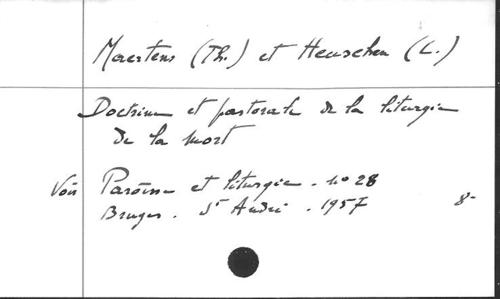 Maertens (Th.) et Heuschen (L.)
Doctrine et pastorale de la liturgie
de la mort
Voir Paroisse et liturgie. n° 28
Bruges. St André. 1957 8-